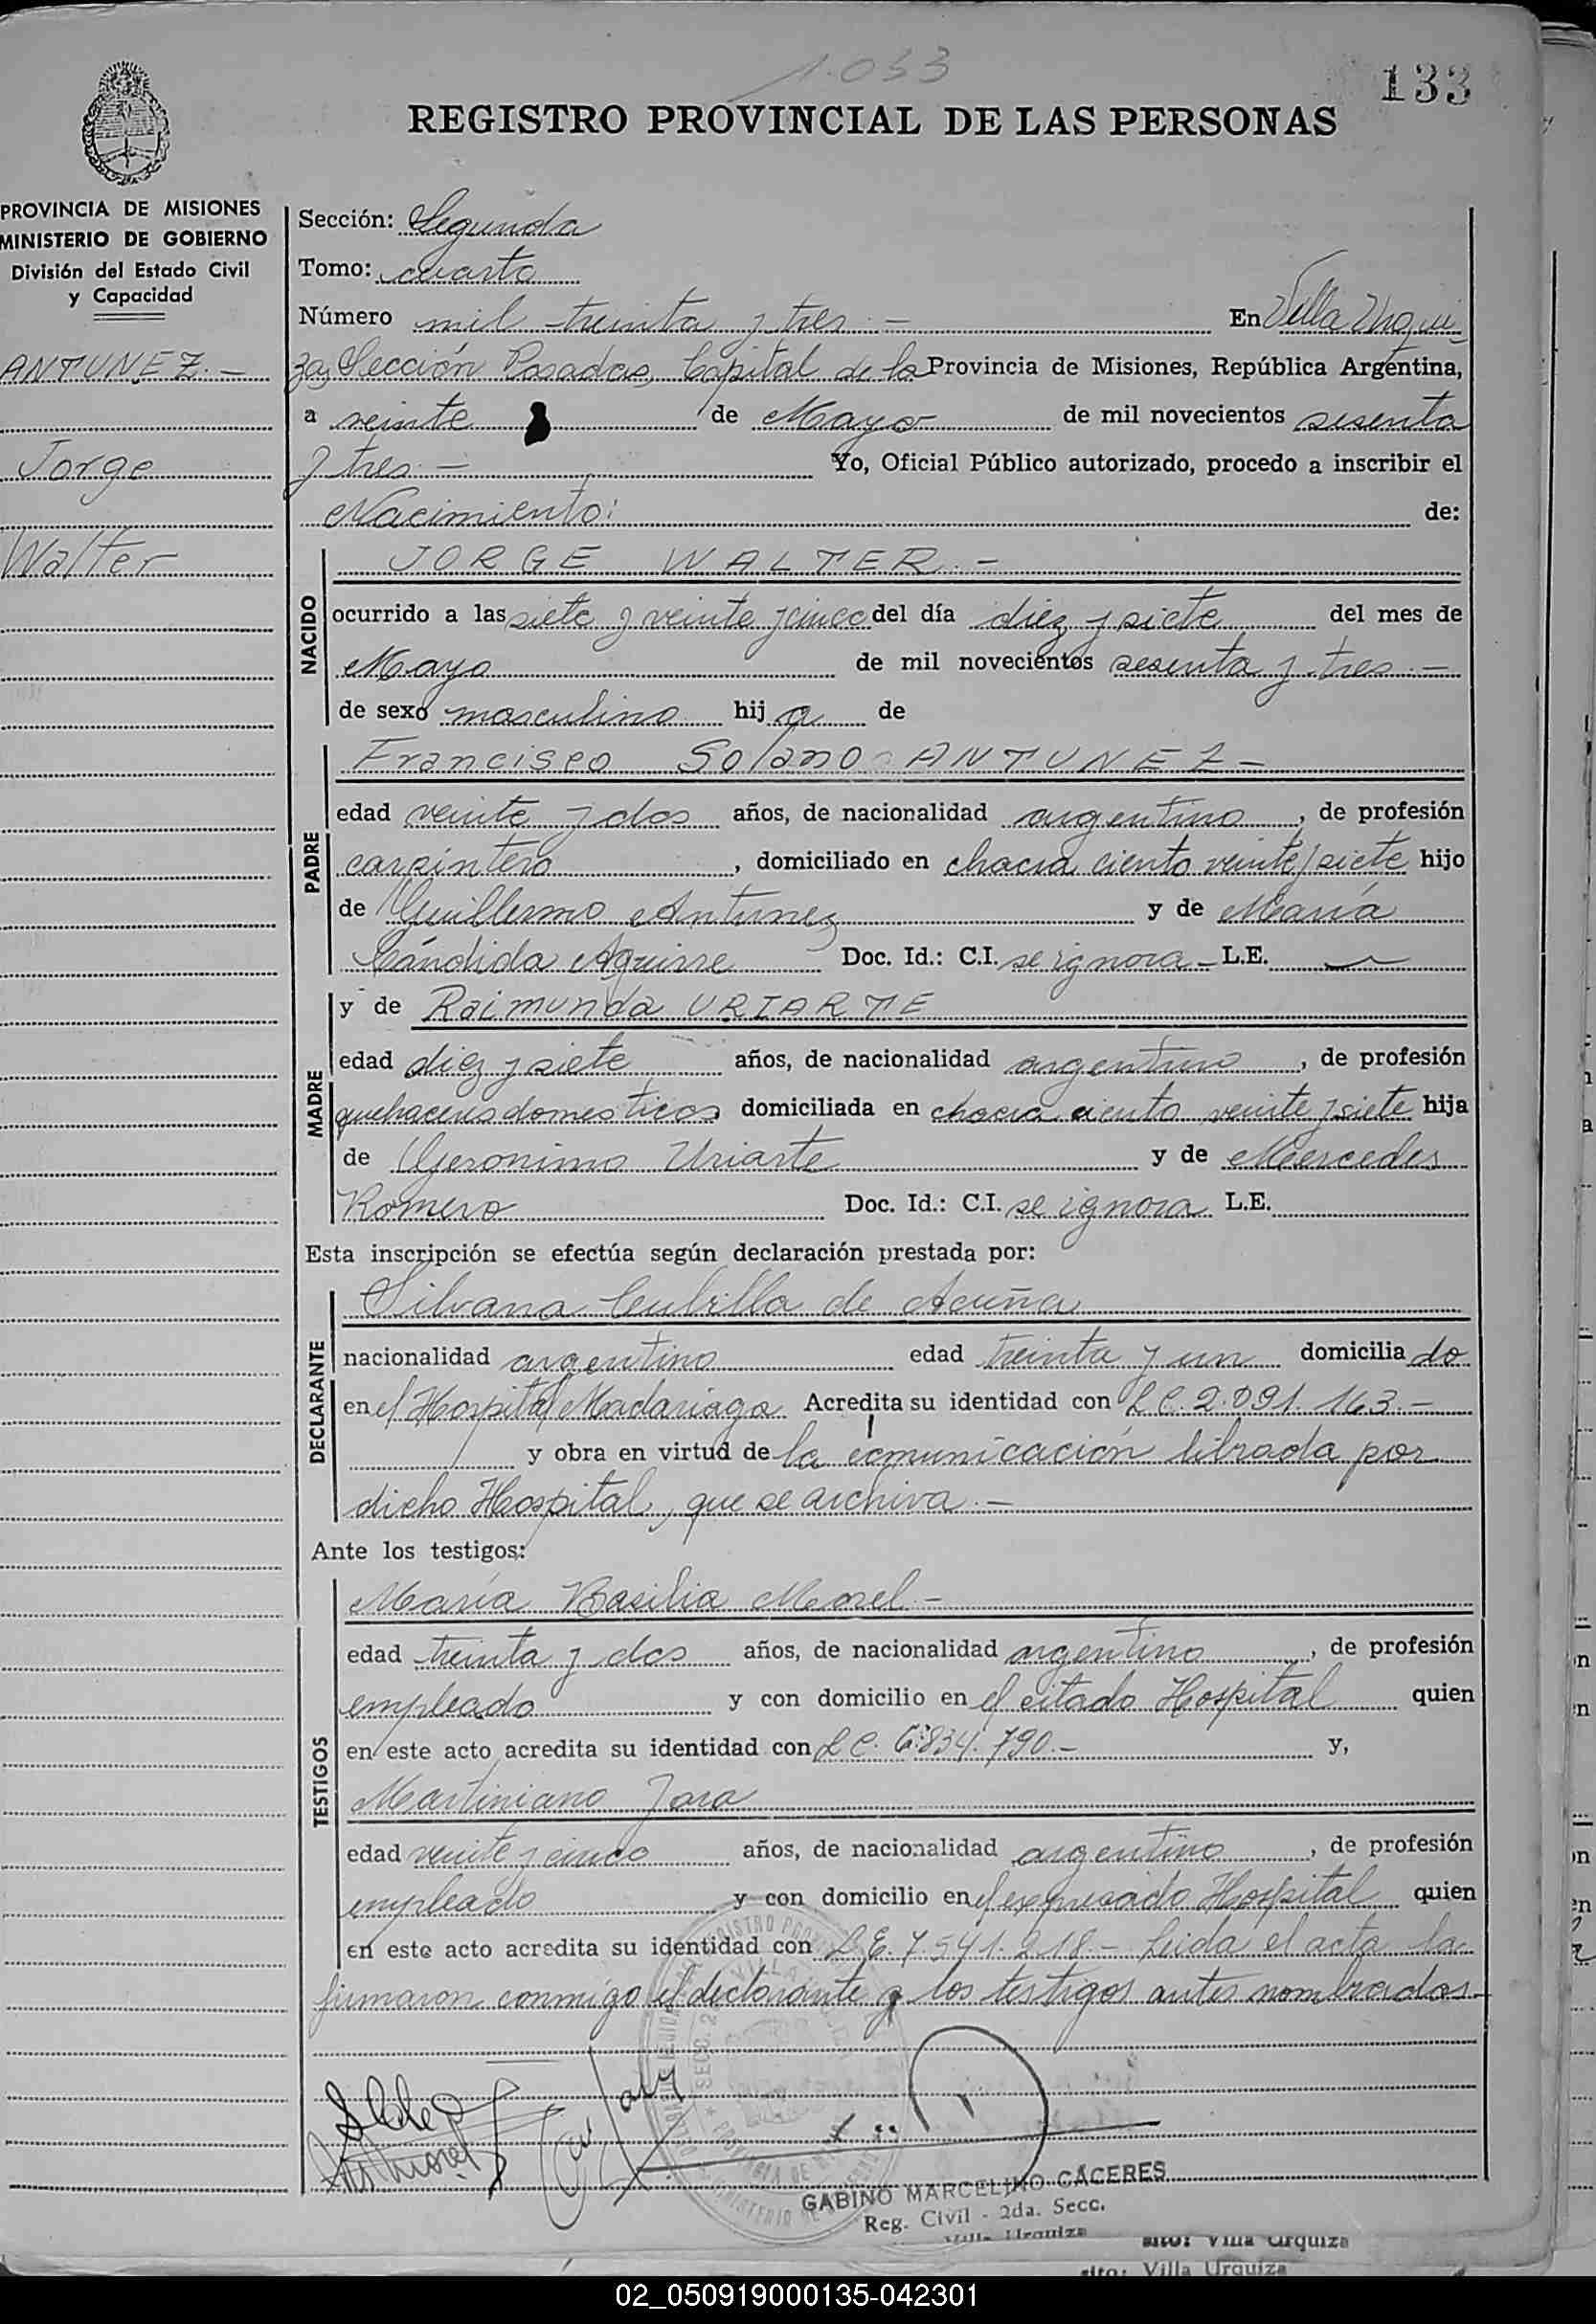 1.033
133
REGISTRO PROVINCIAL DE LAS PERSONAS
PROVINCIA DE MISIONES
MINISTERIO DE GOBIERNO
División del Estado Civil
y Capacidad
ANTUNEZ.-
Jorge
Walter
Sección: Segunda
Tomo: cuarto
Número mil treinta y tres.- En Villa Urqui-
za, Sección Posadas, Capital de la Provincia de Misiones, República Argentina,
a veinte de Mayo de mil novecientos sesenta
y tres.- Yo, Oficial Público autorizado, procedo a inscribir el
Nacimiento: de:
NACIDO
JORGE WALTER.-
ocurrido a las siete y veinte y cinco del día diez y siete del mes de
Mayo de mil novecientos sesenta y tres.-
de sexo masculino hij o de
PADRE
Francisco Solano ANTUNEZ-
edad veinte y dos años, de nacionalidad argentino, de profesión
carpintero, domiciliado en chacra ciento veinte y siete hijo
de Guillermo Antunez y de María
Cándida Aguirre Doc. Id.: C.I. se ignora - L.E. —
MADRE
y de Raimunda URIARTE
edad diez y siete años, de nacionalidad argentino, de profesión
quehaceres domesticos domiciliada en chacra ciento veinte y siete hija
de Geronimo Uriarte y de Mercedes
Romero Doc. Id.: C.I. se ignora L.E.
Esta inscripción se efectúa según declaración prestada por:
DECLARANTE
Silvana Cubilla de Acuña
nacionalidad argentino edad treinta y un domicilia do
en el Hospital Madariaga Acredita su identidad con L.C. 2.091.163.-
y obra en virtud de la comunicación librada por
dicho Hospital, que se archiva.-
Ante los testigos:
TESTIGOS
María Basilia Morel-
edad treinta y dos años, de nacionalidad argentino, de profesión
empleado y con domicilio en el citado Hospital quien
en este acto acredita su identidad con L.C. 6.834.790.- y,
Martiniano Jara
edad veinte y cinco años, de nacionalidad argentino, de profesión
empleado y con domicilio en el expresado Hospital quien
en este acto acredita su identidad con L.E. 7.541.218.- Leida el acta la
firmaron conmigo el declarante y los testigos antes nombrados.-
GABINO MARCELINO CÁCERES
Reg. Civil - 2da. Secc.
Villa Urquiza
sito: Villa Urquiza
sito: Villa Urquiza
02_050919000135-042301